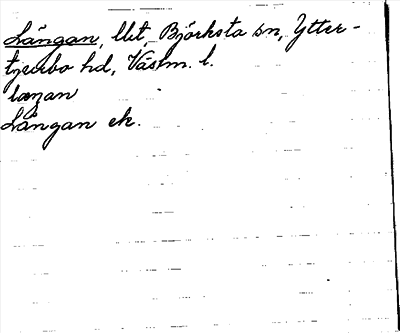 Långan, llt, Björksta sn, Ytter-
tjurbo hd, Västm. l.
laŋan
Långan ek.